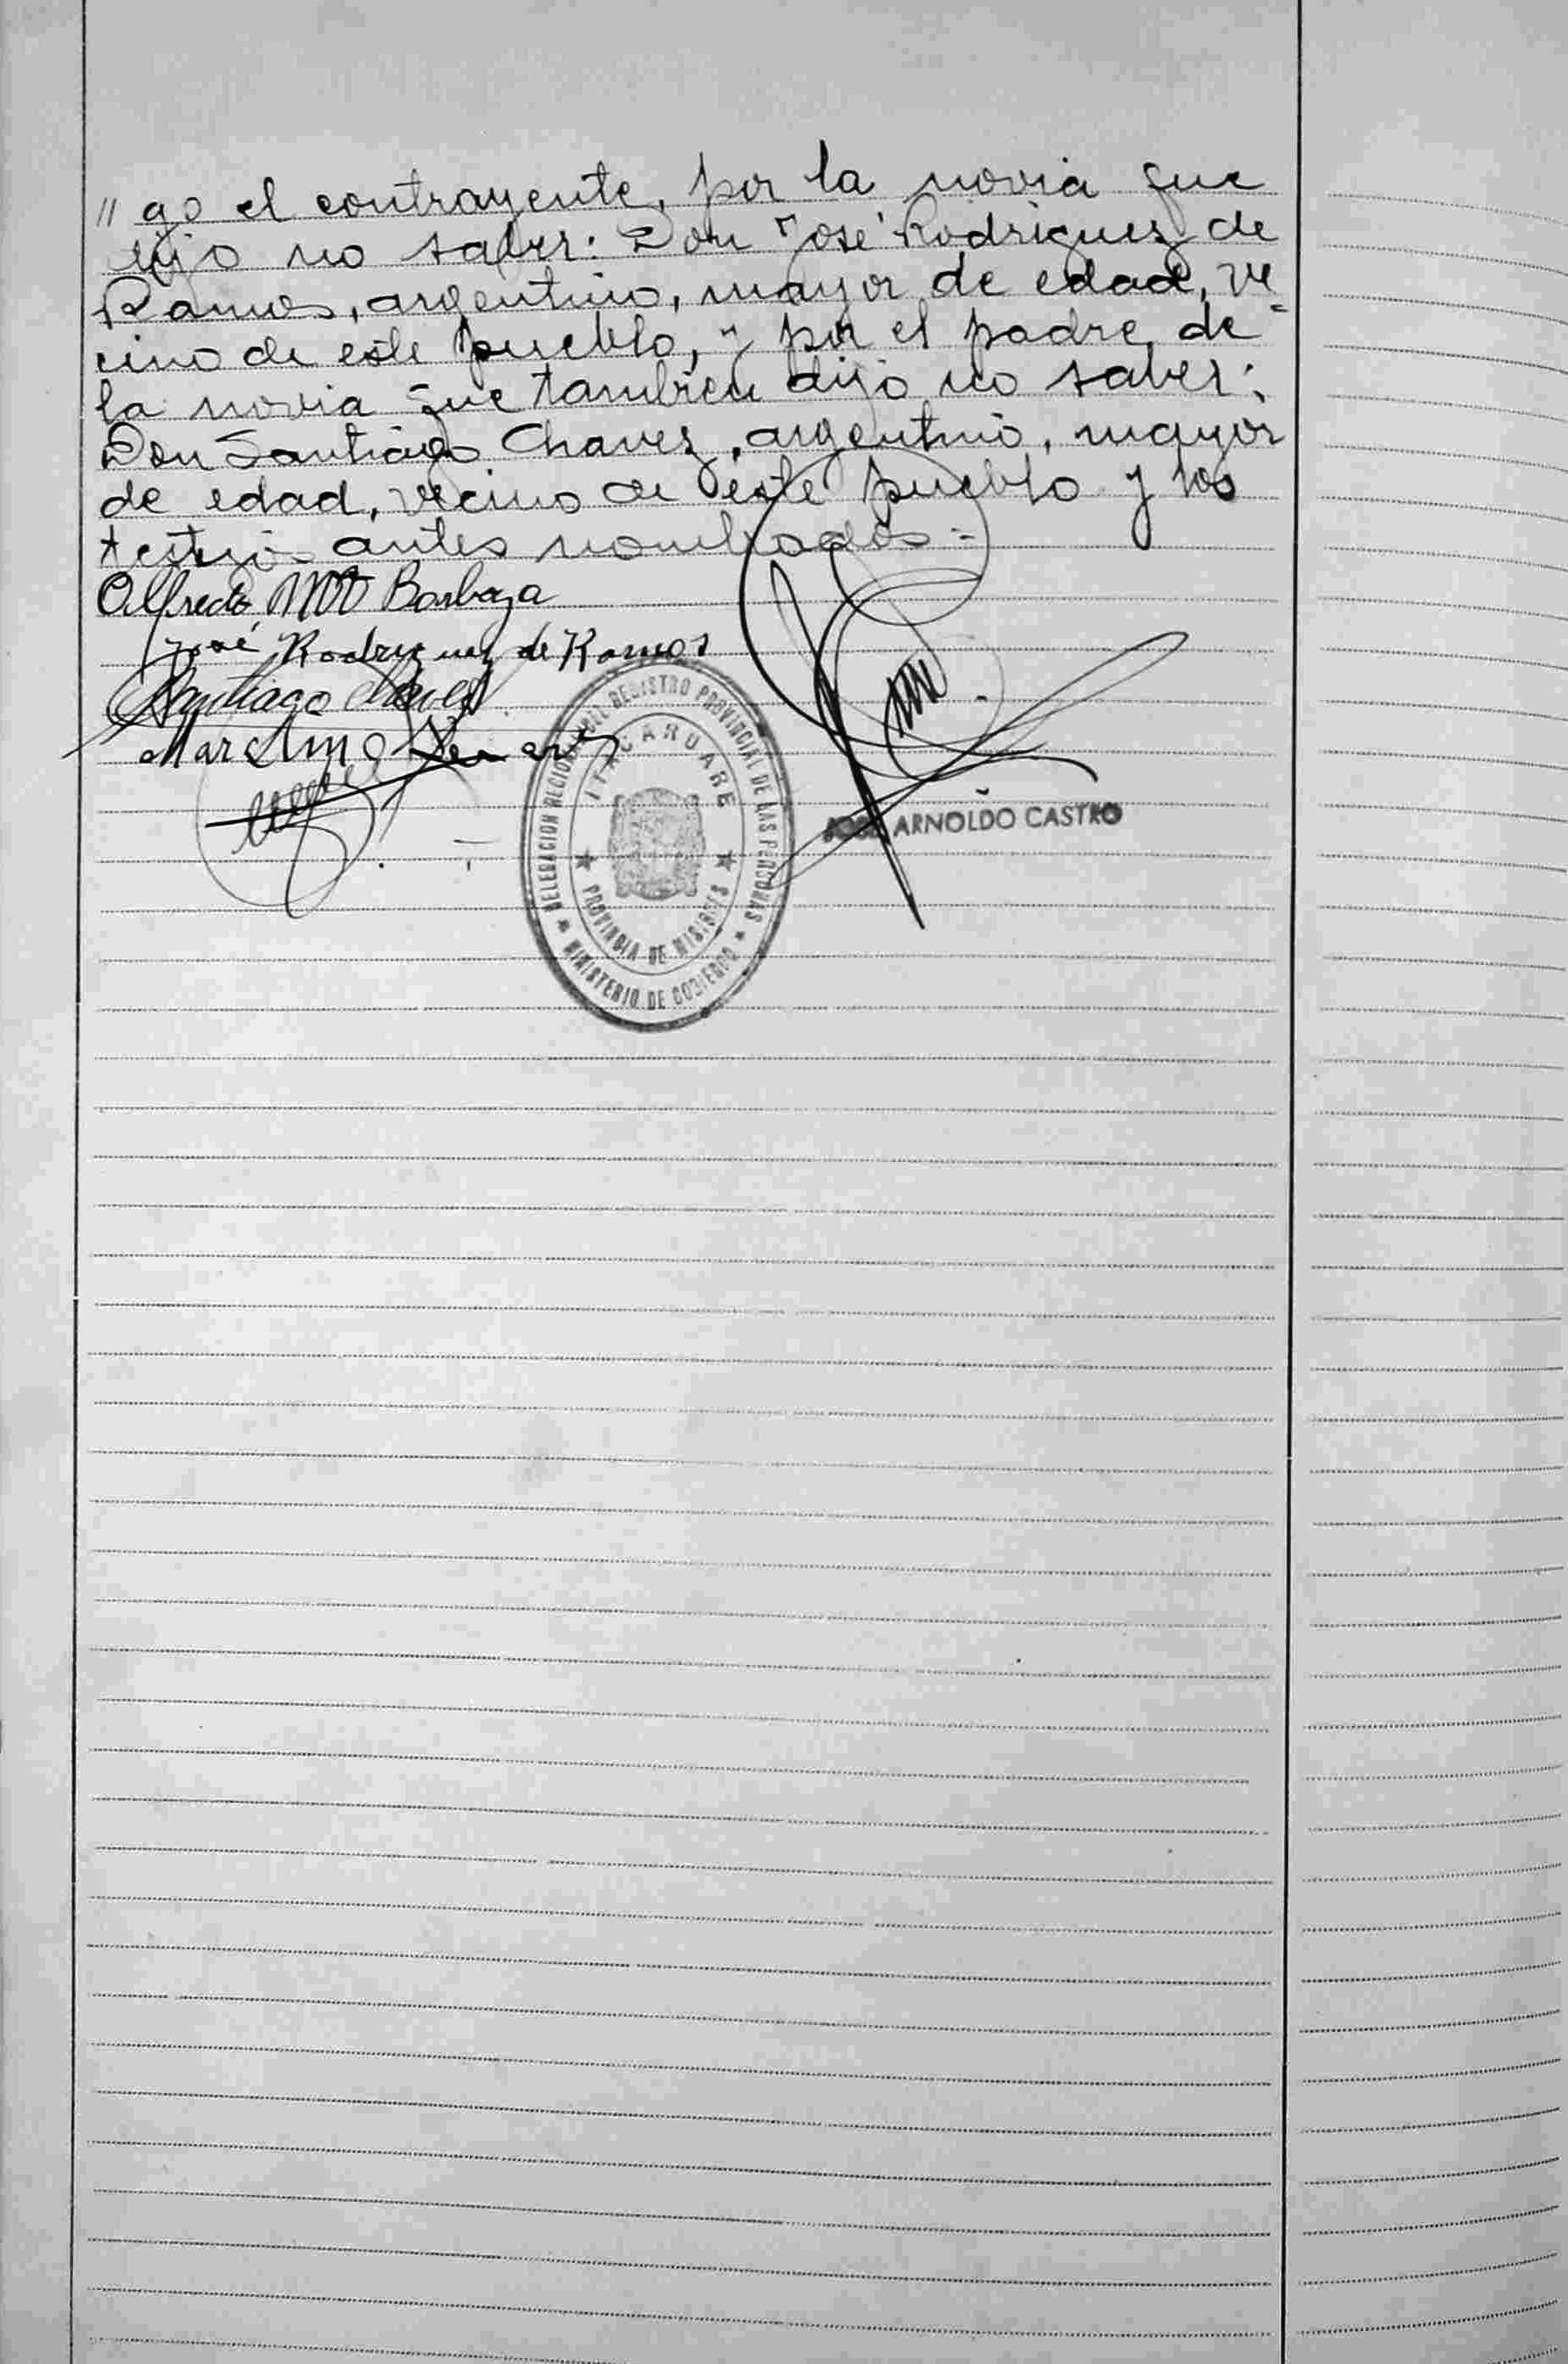 // go el contrayente, por la novia que
dijo no saber: Don José Rodriguez de
Ramos, argentino, mayor de edad, ve-
cino de este pueblo, y por el padre de
la novia que tambien dijo no saber:
Don Santiago Chavez, argentino, mayor
de edad, vecino de este pueblo y los
testigos antes nombrados.-
Alfredo Barboza
José Rodriguez de Ramos
Santiago Chavez
Marcelino
DELEGACION REGIONAL DEL REGISTRO PROVINCIAL DE LAS PERSONAS
ITACARUARE
PROVINCIA DE MISIONES
MINISTERIO DE GOBIERNO
JOSE ARNOLDO CASTRO